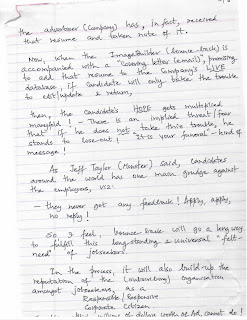 the advertiser (Company) has, in fact, received
that resume and taken note of it.
Now, when the ImageBuilder (bounce-back) is
accompanied with a "Covering letter (email)", promising
to add that resume to the Company's LIVE
database, if Candidate will only take the trouble
to edit/update & return,
then, the candidate's HOPE gets multiplied
manyfold! - There is an implied threat/fear
that if he does not take this trouble, he
stands to lose-out! "It is your funeral" - kind of
message!
As Jeff Taylor (Monster) said, candidates
around the world has one main grudge against
the employers, viz:
- they never get any feedback! Apply, apply,
no reply!
So I feel, bounce-back will go a long
way to fulfill this long-standing & universal "felt-
need" of jobseekers.
In the process, it will also build-up the
reputation of the (subscribing) organisation
amongst jobseekers, as a
Responsible/Responsive
Corporate Citizen